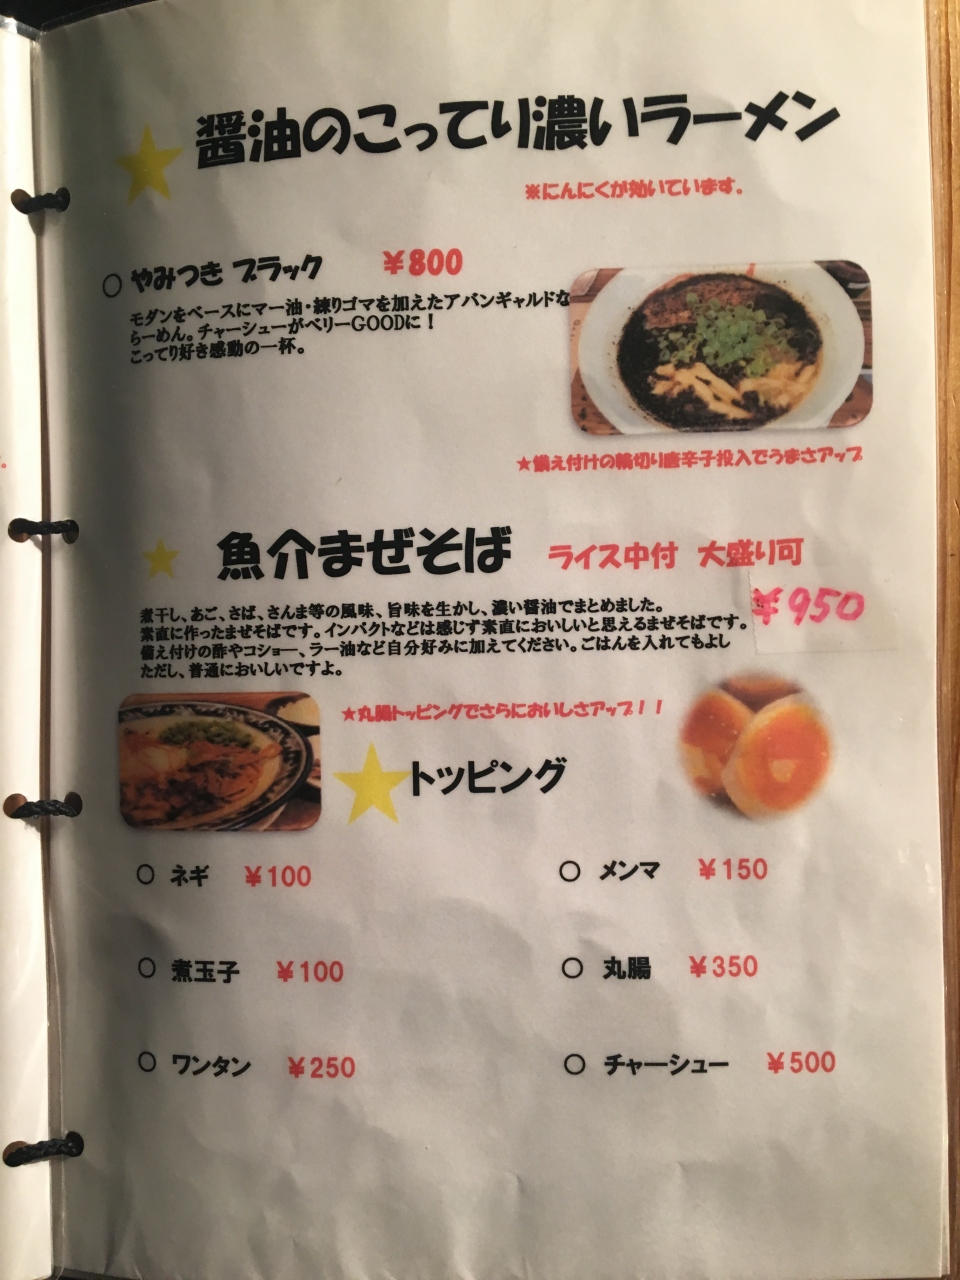 醤油のこってり濃いラーメン
※にんにくが効いています。
○ やみつき ブラック ¥800
モダンをベースにマー油・練りゴマを加えたアバンギャルドな
らーめん。チャーシューがベリーGOODに！
こってり好き感動の一杯。
★備え付けの輪切り唐辛子投入でうまさアップ
魚介まぜそば ライス中付 大盛り可
¥950
煮干し、あご、さば、さんま等の風味、旨味を生かし、濃い醤油でまとめました。
素直に作ったまぜそばです。インパクトなどは感じず素直においしいと思えるまぜそばです。
備え付けの酢やコショー、ラー油など自分好みに加えてください。ごはんを入れてもよし
ただし、普通においしいですよ。
★丸腸トッピングでさらにおいしさアップ！！
トッピング
○ ネギ ¥100
○ メンマ ¥150
○ 煮玉子 ¥100
○ 丸腸 ¥350
○ ワンタン ¥250
○ チャーシュー ¥500